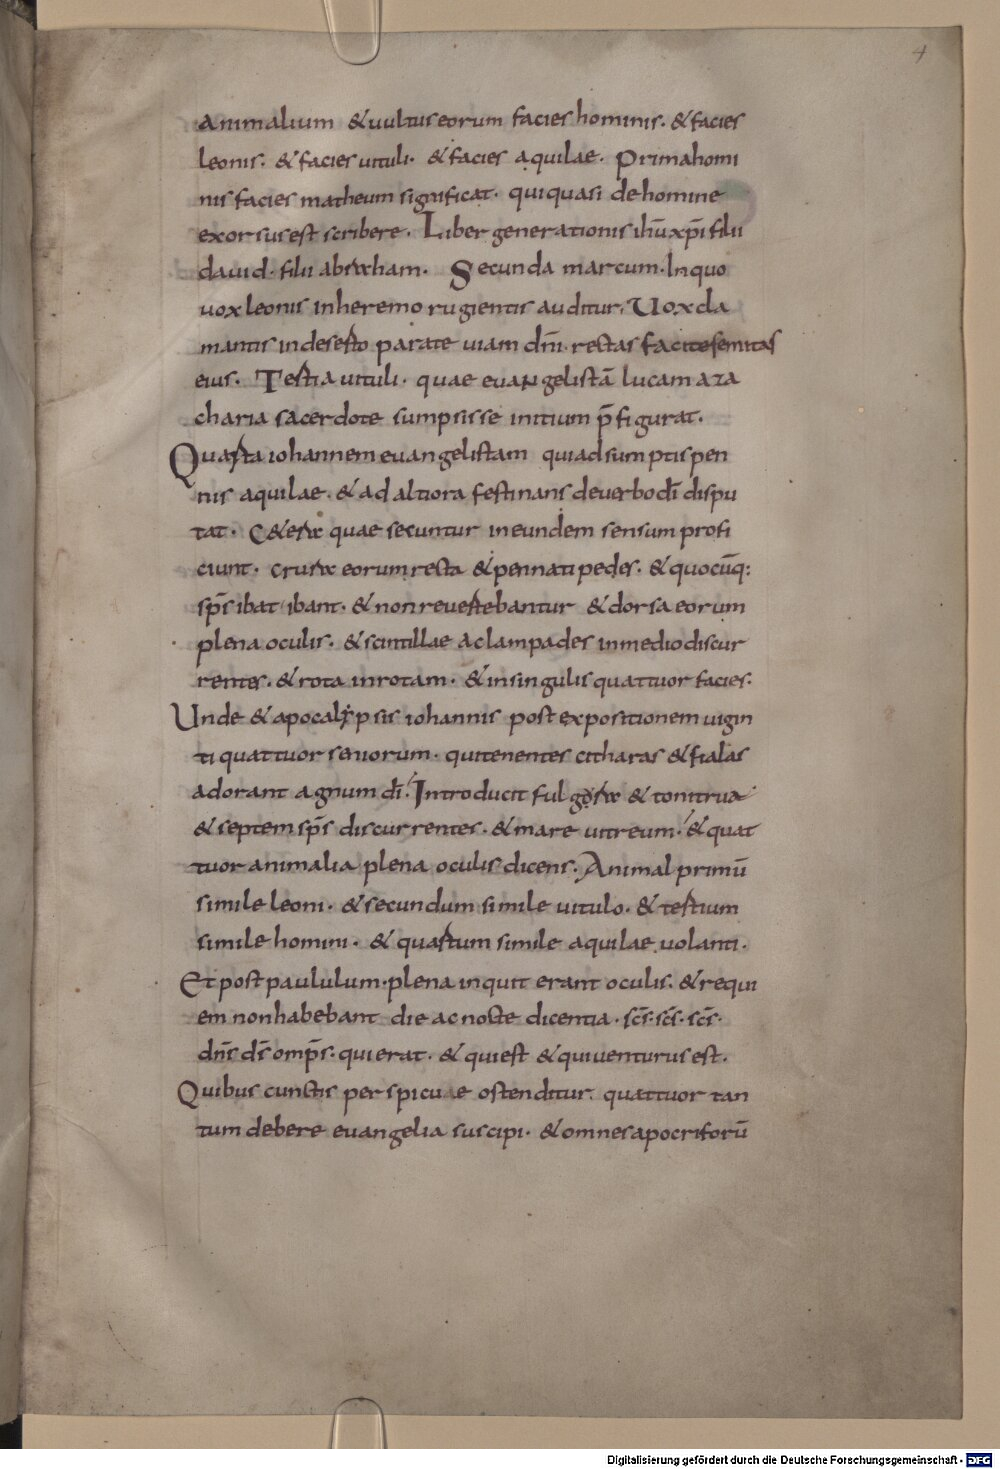 4
animalium & uultus eorum facies hominis. & facies
leonis. & facies uituli. & facies aquilae. Prima homi
nis facies matheum significat. qui quasi de homine
exorsus est scribere. Liber generationis ihū xp̄i filii
dauid. filii abraham. Secunda marcum. In quo
uox leonis in heremo rugientis auditur, Uox cla
mantis in deserto parate uiam dn̄i. rectas facite semitas
eius. Tertia uituli. quae euangelistā lucam a za
charia sacerdote sumpsisse initium p̄figurat.
Quarta iohannem euangelistam qui adsumptis pen
nis aquilae. & ad altiora festinans de uerbo dī dispu
tat. C&era quae secuntur in eundem sensum profi
ciunt. crura eorum recta & pennati pedes. & quocūq:
sp̄s ibat ibant. & non reuertebantur & dorsa eorum
plena oculis. & scintillae ac lampades in medio discur
rentes. & rota in rotam. & in singulis quattuor facies.
Unde & apocalypsis iohannis post expositionem uigin
ti quattuor seniorum. qui tenentes citharas & fialas
adorant agnum dī. Introducit fulgora & tonitrua
& septem sp̄s discurrentes. & mare uitreum. & quat
tuor animalia plena oculis dicens. Animal primū
simile leoni. & secundum simile uitulo. & tertium
simile homini. & quartum simile aquilae uolanti.
Et post paululum. plena inquit erant oculis. & requi
em non habebant die ac nocte dicentia. sc̄s. sc̄s. sc̄s.
dn̄s ds̄ omp̄s. qui erat. & qui est & qui uenturus est.
Quibus cunctis perspicuae ostenditur quattuor tan
tum debere euangelia suscipi. & omnes apocriforū
Digitalisierung gefördert durch die Deutsche Forschungsgemeinschaft - DFG